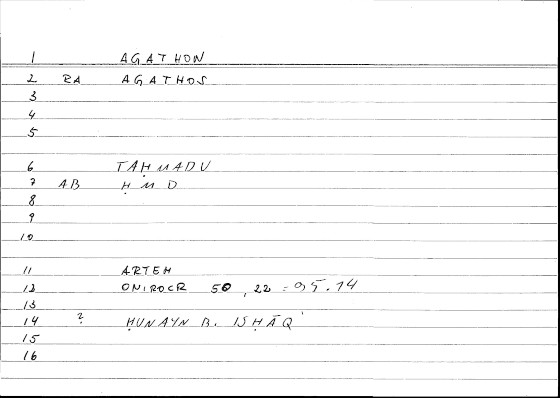 1 AGATHON
2 RA AGATHOS
3
4
5
6 TAḤMADU
7 AB Ḥ M D
8
9
10
11 ARTEM
12 ONIROCR 50, 22 = 95.14
13
14 ? ḤUNAYN B. ISḤĀQ
15
16